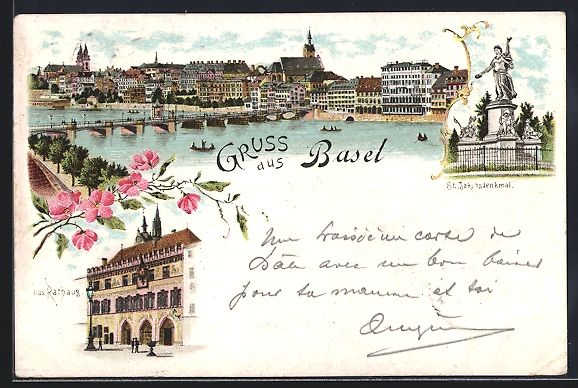 GRUSS aus Basel
St. Jakobsdenkmal.
Das Rathaus
Une troisième carte de
Bâle avec un bon baiser
pour ta maman et toi